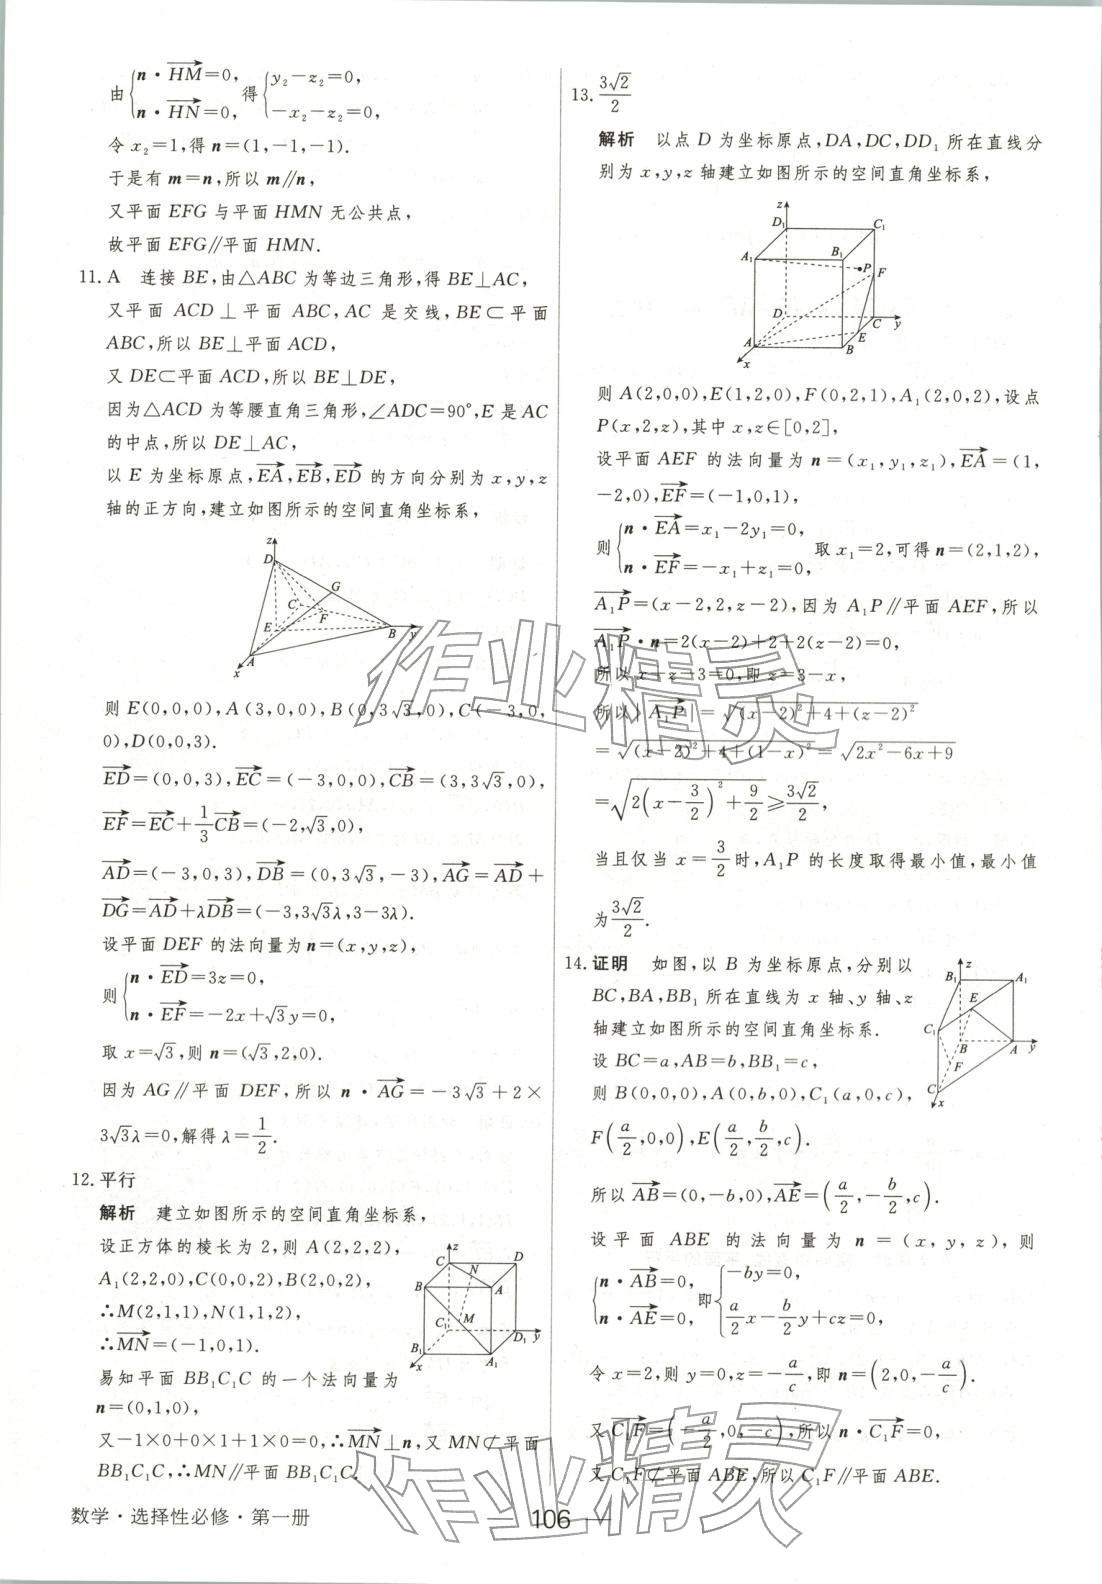 由{n·HM=0, n·HN=0, 得{y₂-z₂=0, -x₂-z₂=0,
令 x₂=1,得 n=(1,-1,-1).
于是有 m=n,所以 m∥n,
又平面 EFG 与平面 HMN 无公共点,
故平面 EFG∥平面 HMN.
11. A 连接 BE,由△ABC 为等边三角形,得 BE⊥AC,
又平面 ACD⊥平面 ABC,AC 是交线,BE⊂平面
ABC,所以 BE⊥平面 ACD,
又 DE⊂平面 ACD,所以 BE⊥DE,
因为△ACD 为等腰直角三角形,∠ADC=90°,E 是 AC
的中点,所以 DE⊥AC,
以 E 为坐标原点,EA,EB,ED 的方向分别为 x,y,z
轴的正方向,建立如图所示的空间直角坐标系,
z
D
G
C
F
E
B
y
A
x
则 E(0,0,0),A(3,0,0),B(0,3√3,0),C(-3,0,
0),D(0,0,3).
ED=(0,0,3),EC=(-3,0,0),CB=(3,3√3,0),
EF=EC+1/3CB=(-2,√3,0),
AD=(-3,0,3),DB=(0,3√3,-3),AG=AD+
DG=AD+λDB=(-3,3√3λ,3-3λ).
设平面 DEF 的法向量为 n=(x,y,z),
则{n·ED=3z=0, n·EF=-2x+√3y=0,
取 x=√3,则 n=(√3,2,0).
因为 AG∥平面 DEF,所以 n·AG=-3√3+2×
3√3λ=0,解得 λ=1/2.
12. 平行
解析 建立如图所示的空间直角坐标系,
设正方体的棱长为 2,则 A(2,2,2),
A₁(2,2,0),C(0,0,2),B(2,0,2),
∴M(2,1,1),N(1,1,2),
∴MN=(-1,0,1).
易知平面 BB₁C₁C 的一个法向量为
n=(0,1,0),
z
C
D
N
B
A
M
C₁
D₁
y
B₁
x
A₁
又-1×0+0×1+1×0=0,∴MN⊥n,又 MN⊄平面
BB₁C₁C,∴MN∥平面 BB₁C₁C.
数学·选择性必修·第一册
106
13. 3√2/2
解析 以点 D 为坐标原点,DA,DC,DD₁ 所在直线分
别为 x,y,z 轴建立如图所示的空间直角坐标系,
z
D₁
C₁
A₁
B₁
P
F
D
C
y
E
A
B
x
则 A(2,0,0),E(1,2,0),F(0,2,1),A₁(2,0,2),设点
P(x,2,z),其中 x,z∈[0,2],
设平面 AEF 的法向量为 n=(x₁,y₁,z₁),EA=(1,
-2,0),EF=(-1,0,1),
则{n·EA=x₁-2y₁=0, n·EF=-x₁+z₁=0, 取 x₁=2,可得 n=(2,1,2),
A₁P=(x-2,2,z-2),因为 A₁P∥平面 AEF,所以
A₁P·n=2(x-2)+2+2(z-2)=0,
所以 x+z-3=0,即 z=3-x,
所以|A₁P|=√((x-2)²+4+(z-2)²)
=√((x-2)²+4+(1-x)²)=√(2x²-6x+9)
=√(2(x-3/2)²+9/2)≥3√2/2,
当且仅当 x=3/2时,A₁P 的长度取得最小值,最小值
为3√2/2.
14. 证明 如图,以 B 为坐标原点,分别以
BC,BA,BB₁ 所在直线为 x 轴、y 轴、z
轴建立如图所示的空间直角坐标系.
设 BC=a,AB=b,BB₁=c,
则 B(0,0,0),A(0,b,0),C₁(a,0,c),
F(a/2,0,0),E(a/2,b/2,c).
z
B₁
A₁
E
C₁
B
A
y
F
C
x
所以 AB=(0,-b,0),AE=(a/2,-b/2,c).
设平面 ABE 的法向量为 n=(x,y,z),则
{n·AB=0, n·AE=0, 即{-by=0, a/2x-b/2y+cz=0,
令 x=2,则 y=0,z=-a/c,即 n=(2,0,-a/c).
又 C₁F=(-a/2,0,-c),所以 n·C₁F=0,
又 C₁F⊄平面 ABE,所以 C₁F∥平面 ABE.
作业精灵
作业精灵